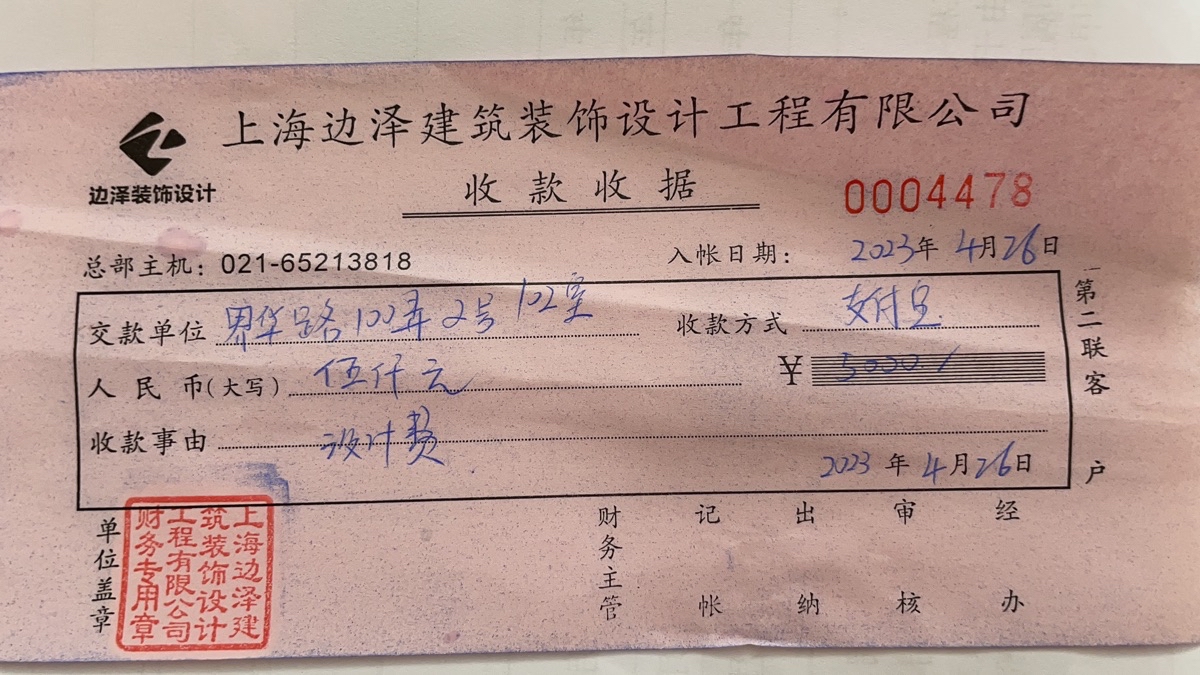 上海边泽建筑装饰设计工程有限公司
边泽装饰设计
收款收据
0004478
总部主机：021-65213818
入帐日期：2023年4月26日
交款单位 界华路100弄2号102室
收款方式 支付宝
人民币(大写) 伍仟元
¥ 5000/
收款事由 设计费
2023年4月26日
第二联客户
单位盖章
上海边泽建筑装饰设计工程有限公司财务专用章
财务主管 记帐 出纳 审核 经办